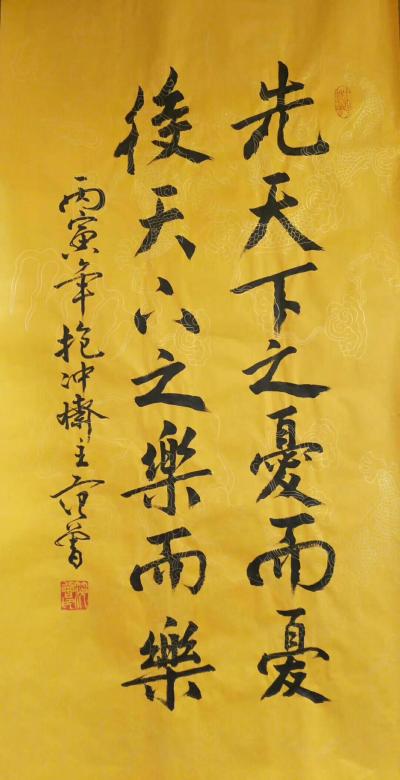 先天下之憂而憂
後天下之樂而樂
丙寅年抱冲齋主范曾